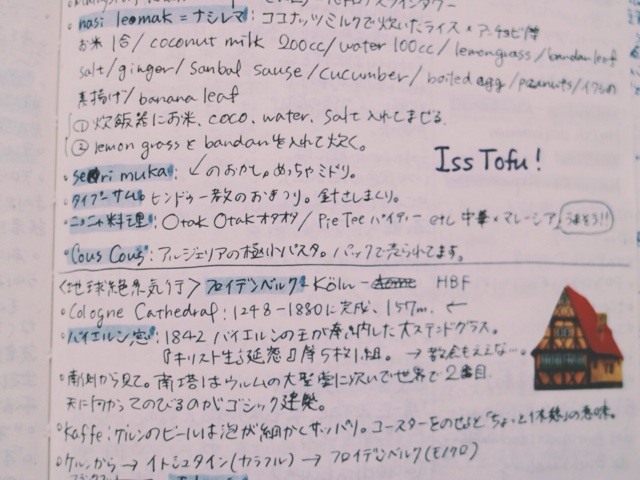 nasi leomak = ナシレマ: ココナッツミルクで炊いたライス × アンチョビ 等
お米 1合 / coconut milk 200cc / water 100cc / lemongrass / bandan leaf
salt / ginger / sanbal sause / cucumber / boiled agg / peanuts / イワシの
素揚げ / banana leaf
① 炊飯器にお米、coco、water、salt 入れてまぜる。
② lemon grass と bandan を入れて炊く。
Iss Tofu!
seri muka: のおかし。めっちゃミドリ。
タイプーサム: ヒンドゥー教のおまつり。針さしまくり。
ニョニャ料理: Otak Otak オタオタ / Pie Tee パイティー etc 中華 × マレーシア うまそう!!
Cous Cous: アルジェリアの極小パスタ。パックで売られてます。
〈地球絶景紀行〉 フロイデンベルク Köln - HBF
Cologne Cathedral: 1248-1880に完成、157m. ←
バイエルン窓: 1842 バイエルンの王が奉納した大ステンドグラス。
『キリスト生誕 』等5枚1組。 → 教会もええな…。
南側から見て。南塔はウルムの大聖堂に次いで世界で2番目
天に向かってのびるのがゴシック建築。
Kaffe: ケルンのビールは泡が細かくサッパリ。コースターをのせると「ちょっと1本締」の意味。
ケルンから → イトシュタイン(カラフル) → フロイデンベルク(モノクロ)